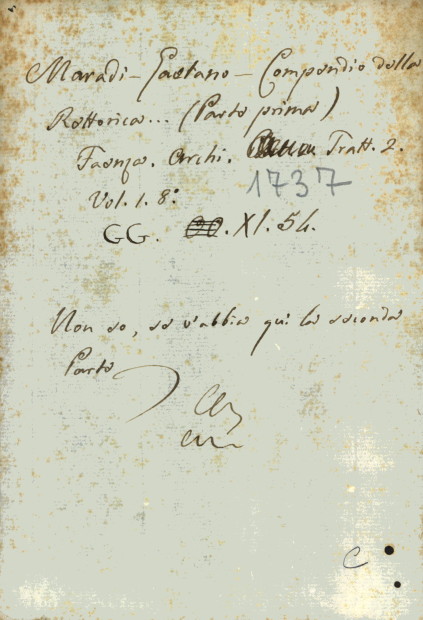 Maradi - Gaetano - Compendio della
Rettorica... (Parte prima)
Faenza. Archi. Tratt. 2.
1737
Vol. 1. 8.°
GG. XI. 54.
Non so, se v'abbia qui la seconda
Parte
C